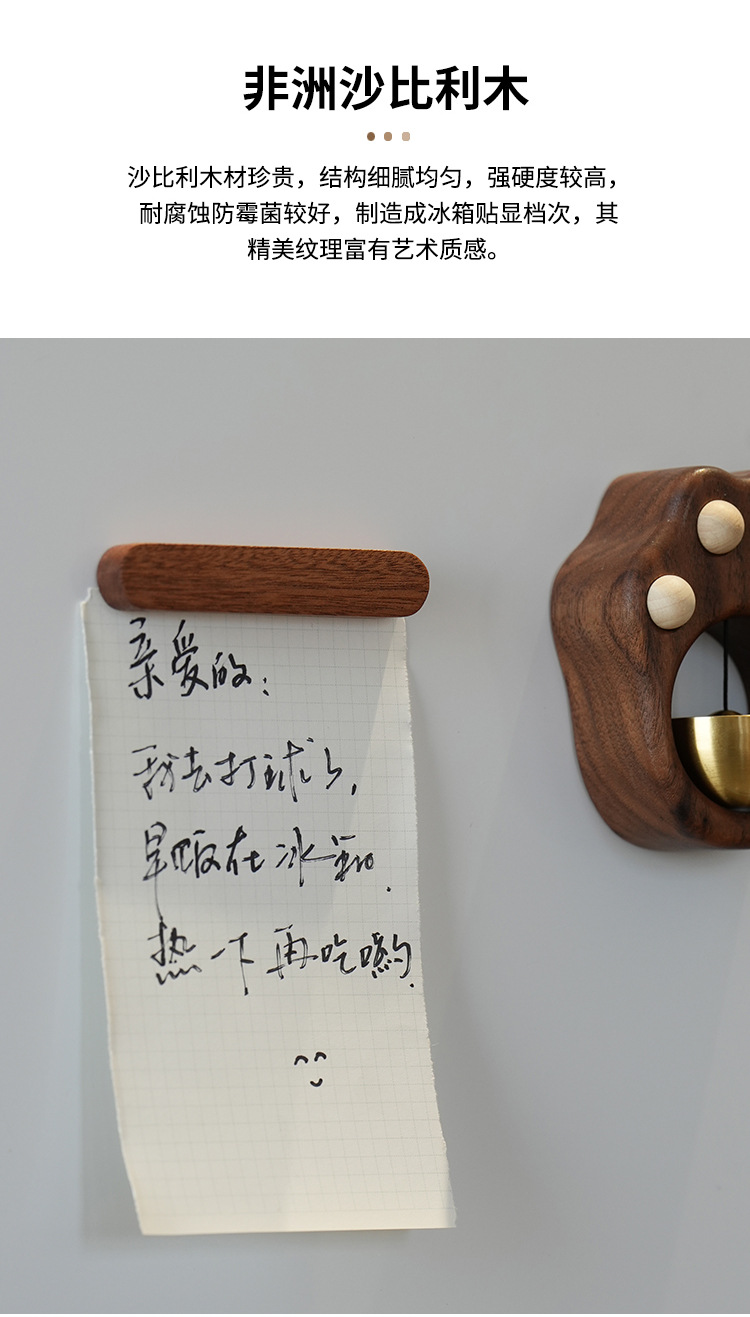 非洲沙比利木
沙比利木材珍贵，结构细腻均匀，强硬度较高，
耐腐蚀防霉菌较好，制造成冰箱贴显档次，其
精美纹理富有艺术质感。
亲爱的：
我去打球了，
早饭在冰箱.
热一下再吃哟.